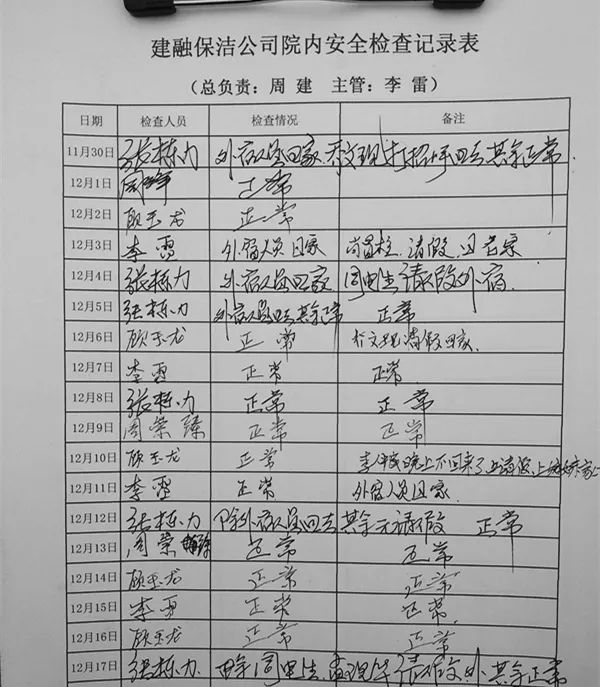 建融保洁公司院内安全检查记录表
(总负责：周 建 主管：李 雷)
日期 检查人员 检查情况 备注
11月30日 张栋力 外宿人员回家 其余正常
12月1日 周 正常
12月2日 顾玉龙 正常
12月3日 李雷 外宿人员回家 请假 回老家
12月4日 张栋力 外宿人员回家 请假外宿
12月5日 张栋力 外宿人员回去其余正常 正常
12月6日 顾玉龙 正常 请假回家
12月7日 李雷 正常 正常
12月8日 张栋力 正常 正常
12月9日 周荣臻 正常 正常
12月10日 顾玉龙 正常 晚上不回来了
12月11日 李雷 正常 外宿人员回家
12月12日 张栋力 除外宿人员回去 其余无请假 正常
12月13日 周荣臻 正常 正常
12月14日 顾玉龙 正常 正常
12月15日 李雷 正常 正常
12月16日 顾玉龙 正常 正常
12月17日 张栋力 请假外 其余正常